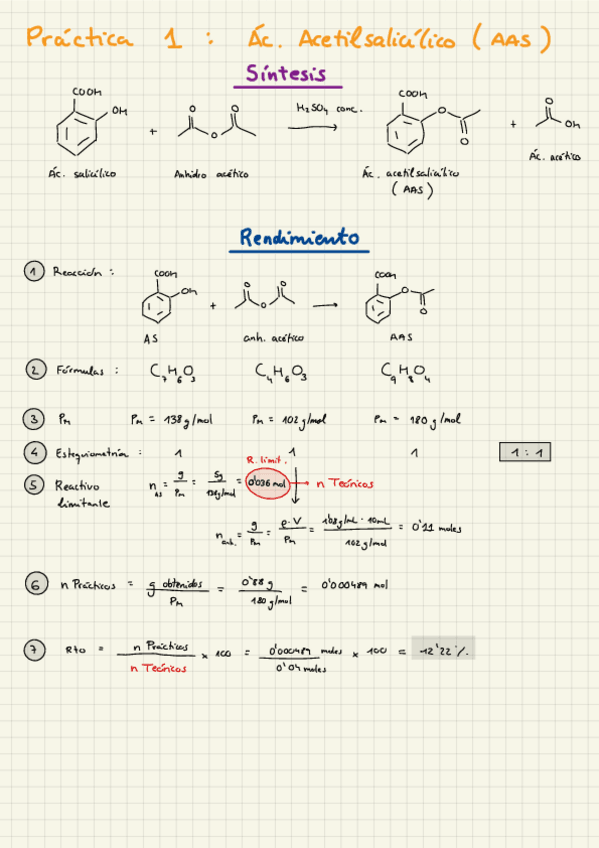 Práctica 1 : Ác. Acetilsalicílico (AAS)
Síntesis
COOH OH + O O O H₂SO₄ conc. → COOH O O + O OH
Ác. salicílico Anhidro acético Ác. acetilsalicílico (AAS) Ác. acético
Rendimiento
1 Reacción : COOH OH + O O O → COOH O O
AS anh. acético AAS
2 Fórmulas : C₇H₆O₃ C₄H₆O₃ C₉H₈O₄
3 Pm Pm = 138 g/mol Pm = 102 g/mol Pm = 180 g/mol
4 Estequiometría : 1 1 1 1 : 1
R. limit.
5 Reactivo limitante n AS = g / Pm = 5g / 138g/mol = 0'036 mol → n Teóricos
n anh. = g / Pm = ρ · V / Pm = 1'08 g/mL · 10mL / 102 g/mol = 0'11 moles
6 n Prácticos = g obtenidos / Pm = 0'88 g / 180 g/mol = 0'000489 mol
7 Rto = n Prácticos / n Teóricos × 100 = 0'000489 moles / 0'04 moles × 100 = 12'22 %